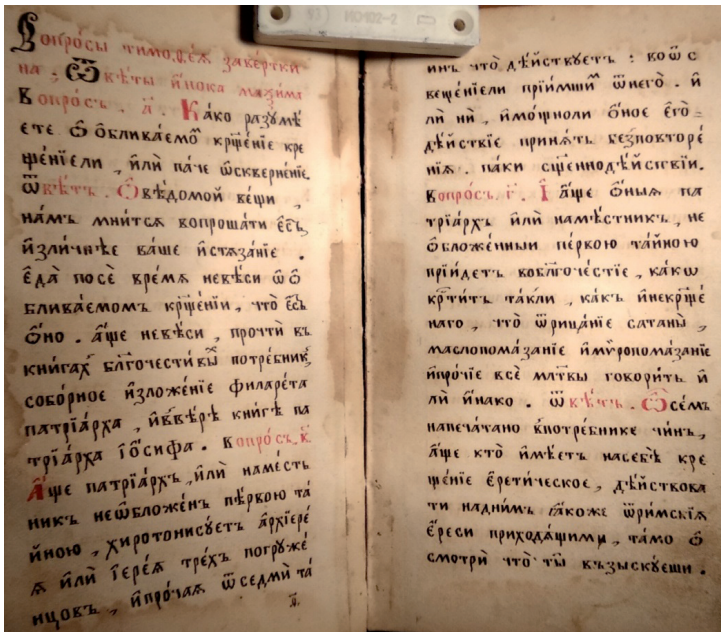 93 ИО102-2
Вопро́сы тимоѳе́я заве́ртки
на , Ѿвѣ́ты и́нока маѯима
Вопро́съ . а҃. Ка́ко разꙋмѣ́
ете Ѡ Ѡблива́емоⷨ крⷳе́нїе кре
ще́нїели , и҆лѝ па́че ѡскверне́нїе.
Ѿвѣ́тъ . Ѻ вѣ́домой ве́щи ,
на́мъ мни́тсѧ вопроша́ти є҆сть
и҆зли́чнѣе ва́ше и҆стѧза́нїе .
є҆да̀ посѐ вре́мѧ невѣ́си ѡ ѡ
блива́емомъ крⷳе́нїи , что̀ є҆сть
ѻ҆но . а҆́ще невѣ́си , прочтѝ въ
кни́гахъ бл҃гочести́выⷯ потре́бникⷯ
собо́рное и҆зложе́нїе филаре́та
патрїа́рха , и҆в̾вѣ́рѣ кни́гѣ па
трїа́рха і҆ѡ́сифа . вопро́съ . в҃.
А҆́ще патрїа́рхъ , и҆лѝ намѣ́сть
никъ неѡбложе́нъ пе́рвою та́
йною , хиротони́сꙋетъ а҆рхїере́
ѧ и҆лѝ і҆ере́ѧ тре́хъ погрꙋже́
нцовъ , и҆про́чаѧ ѿседмѝ та́
а҃.
инъ что̀ дѣ́йствꙋетъ : воѿс
веще́нїели прїи́мшиⷨ ѿнегѡ̀ . и҆
лѝ нѝ , и҆мо́щноли ѻ҆́ное є҆гѡ̀
дѣ́йствїе принѧ́ть безповторе́
нїѧ . па́ки сщ҃еннодѣ́йствїи.
вопро́съ . г҃. І҆ а҆́ще ѻ҆́ныѧ па
трїа́рхъ и҆лѝ намѣ́стникъ , не
ѡбложе́нныи пе́рвою та́йною
прїи́детъ во бл҃гоче́стїе , ка́кѡ
крⷭ҇ти́тъ та́кли , ка́къ и҆некрⷳе́
наго , что̀ ѿрица́нїе сатаны̀ ,
маслопома́занїе и҆мѵ́ропома́занїе
и҆про́чїе всѐ мл҃твы говори́ть и҆
лѝ и҆на́ко . ѿвѣ́тъ . Ѡ се́мъ
напеча́тано в̾потре́бнике чи́нъ ,
а҆́ще кто̀ и҆мѣ́етъ насебѣ̀ кре
ще́нїе є҆рети́ческое , дѣ́йствова
ти надни́мъ ꙗ҆́коже ѿри́мскїѧ
є҆́реси приходѧ́щимъ , та́мо ѻ҆
смотрѝ что̀ ты̀ възы́скꙋеши .